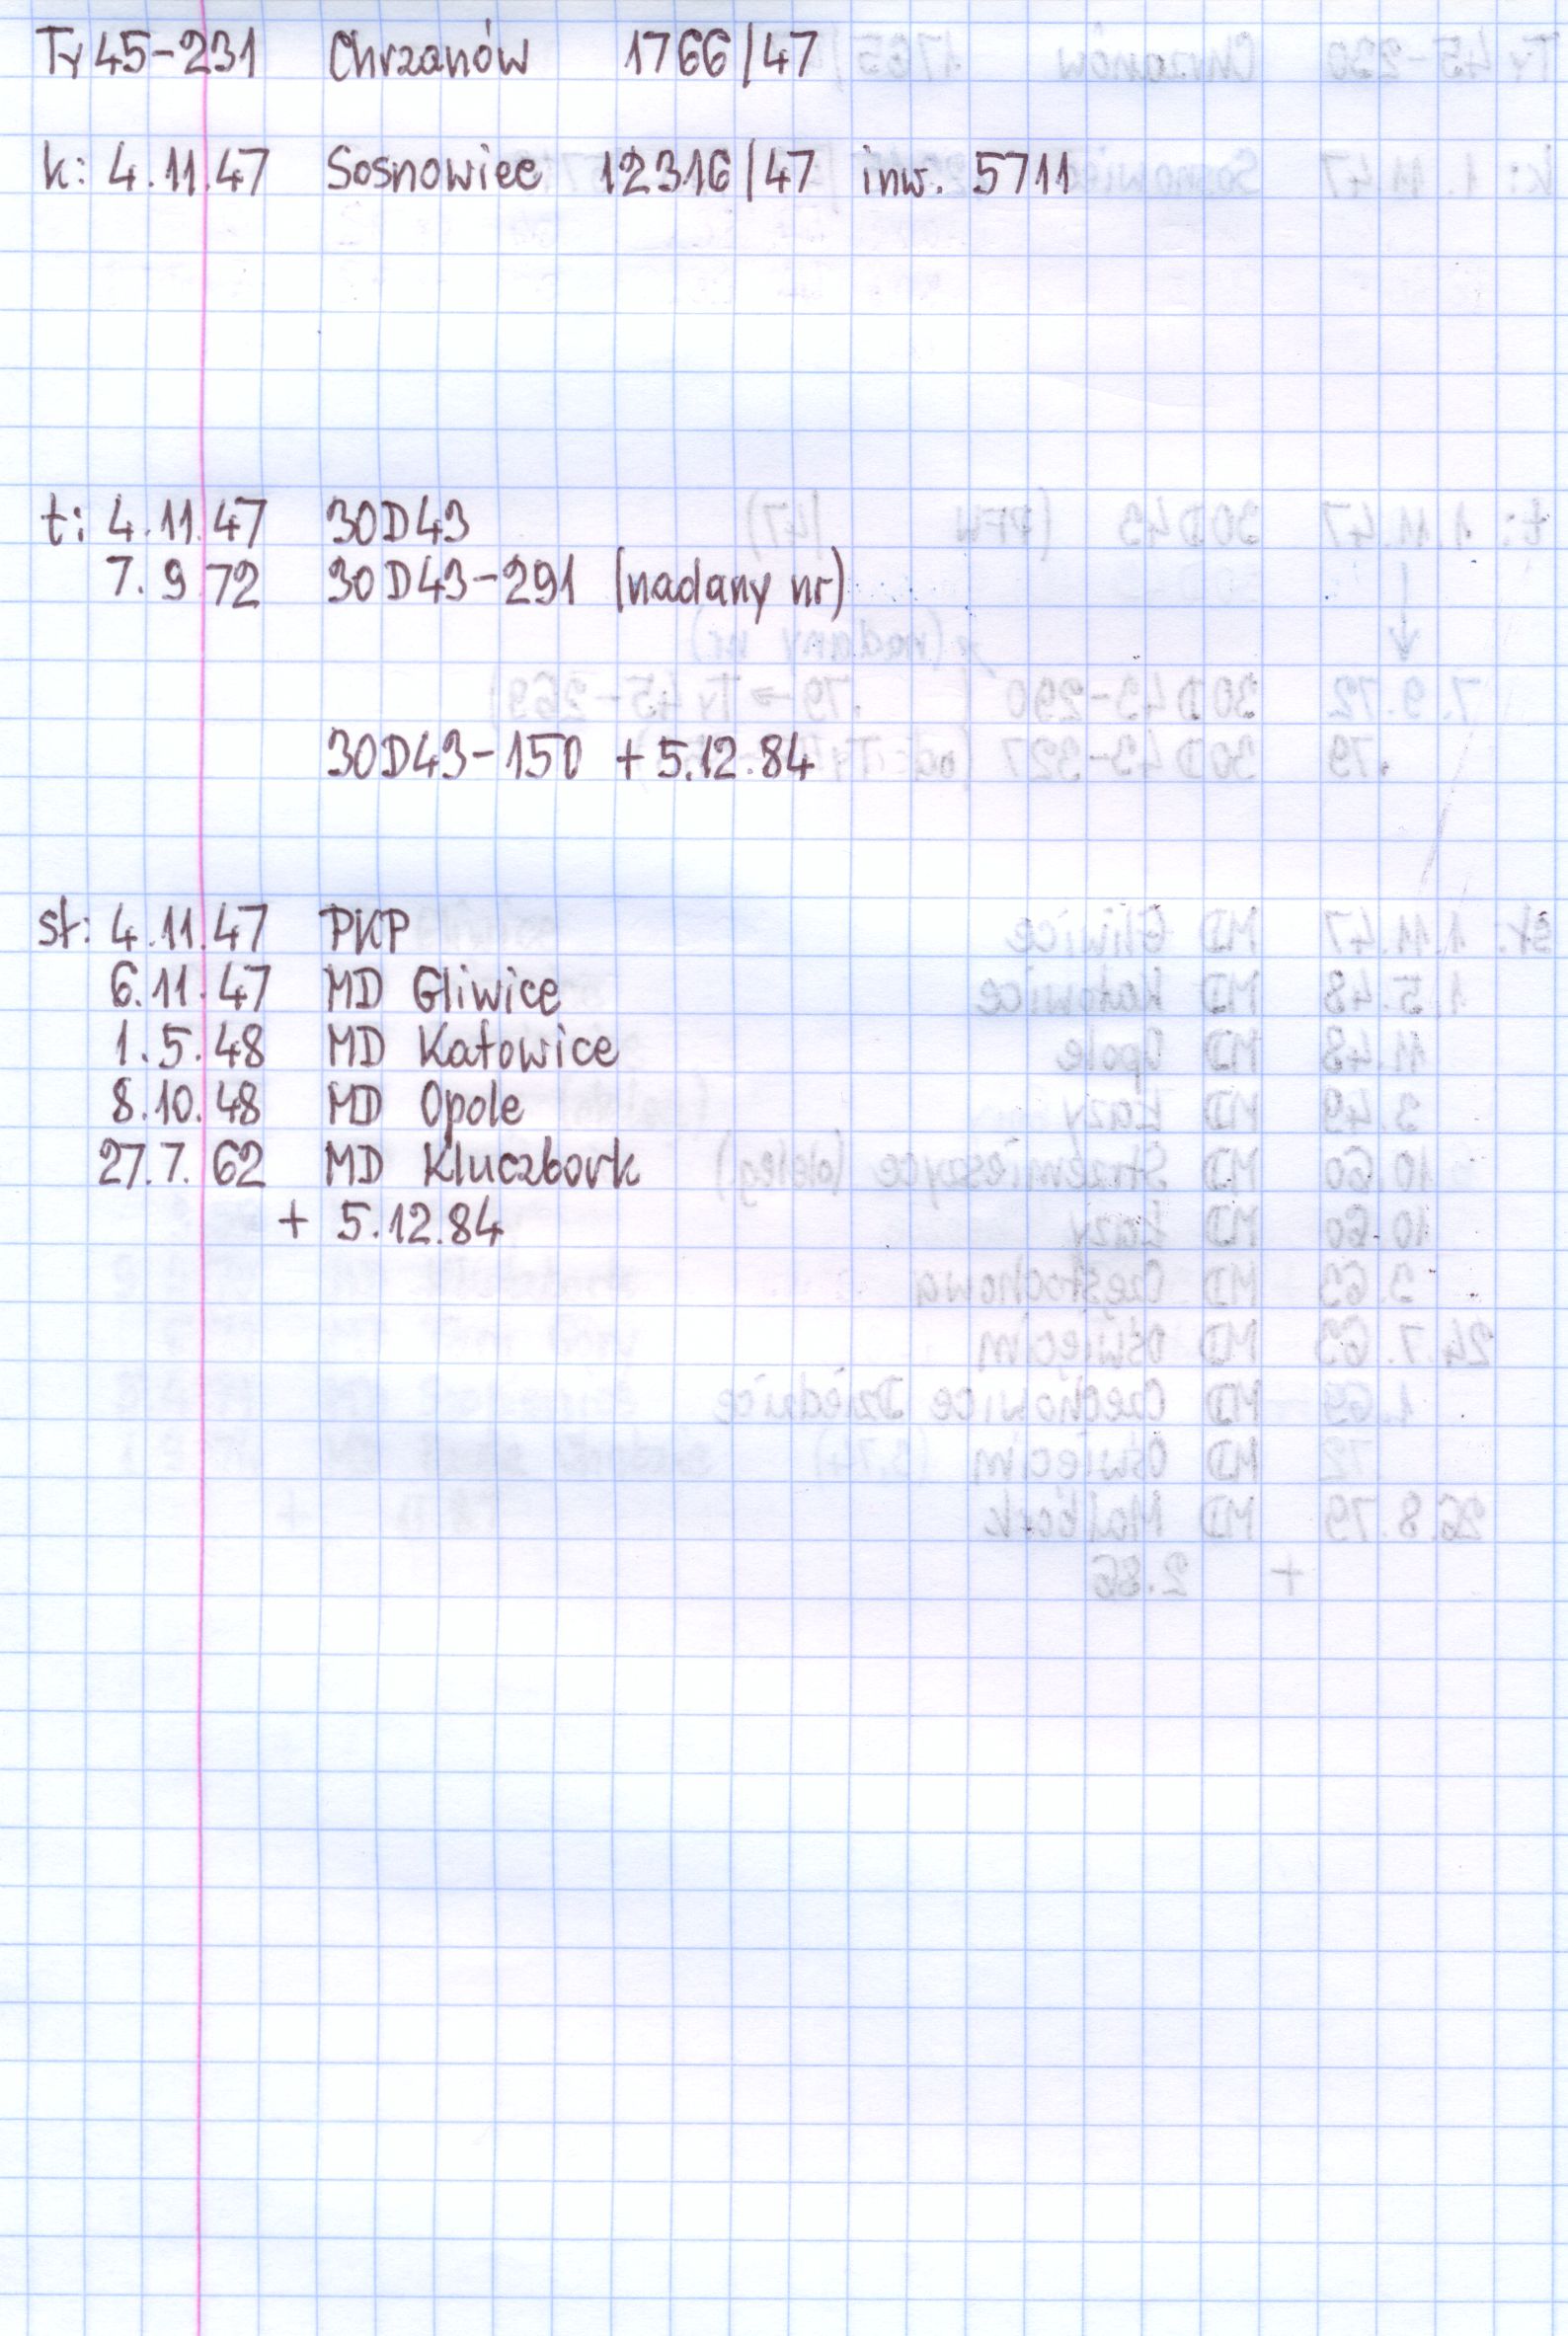 Ty45-231 Chrzanów 1766/47
k: 4.11.47 Sosnowiec 12316/47 inw. 5711
t: 4.11.47 30D43
7.9.72 30D43-291 (nadany nr)
30D43-150 + 5.12.84
st: 4.11.47 PKP
6.11.47 MD Gliwice
1.5.48 MD Katowice
8.10.48 MD Opole
27.7.62 MD Kluczbork
+ 5.12.84